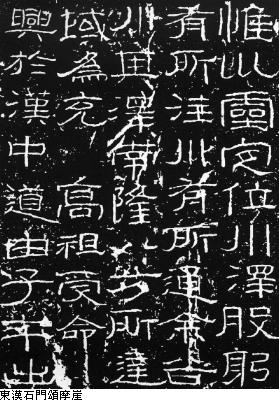 惟巛靈定位川澤股躬
有所注川有所通余谷
川其澤南隆八方所達
域為充　高祖受命
興於漢中道由子午出
東漢石門頌摩崖